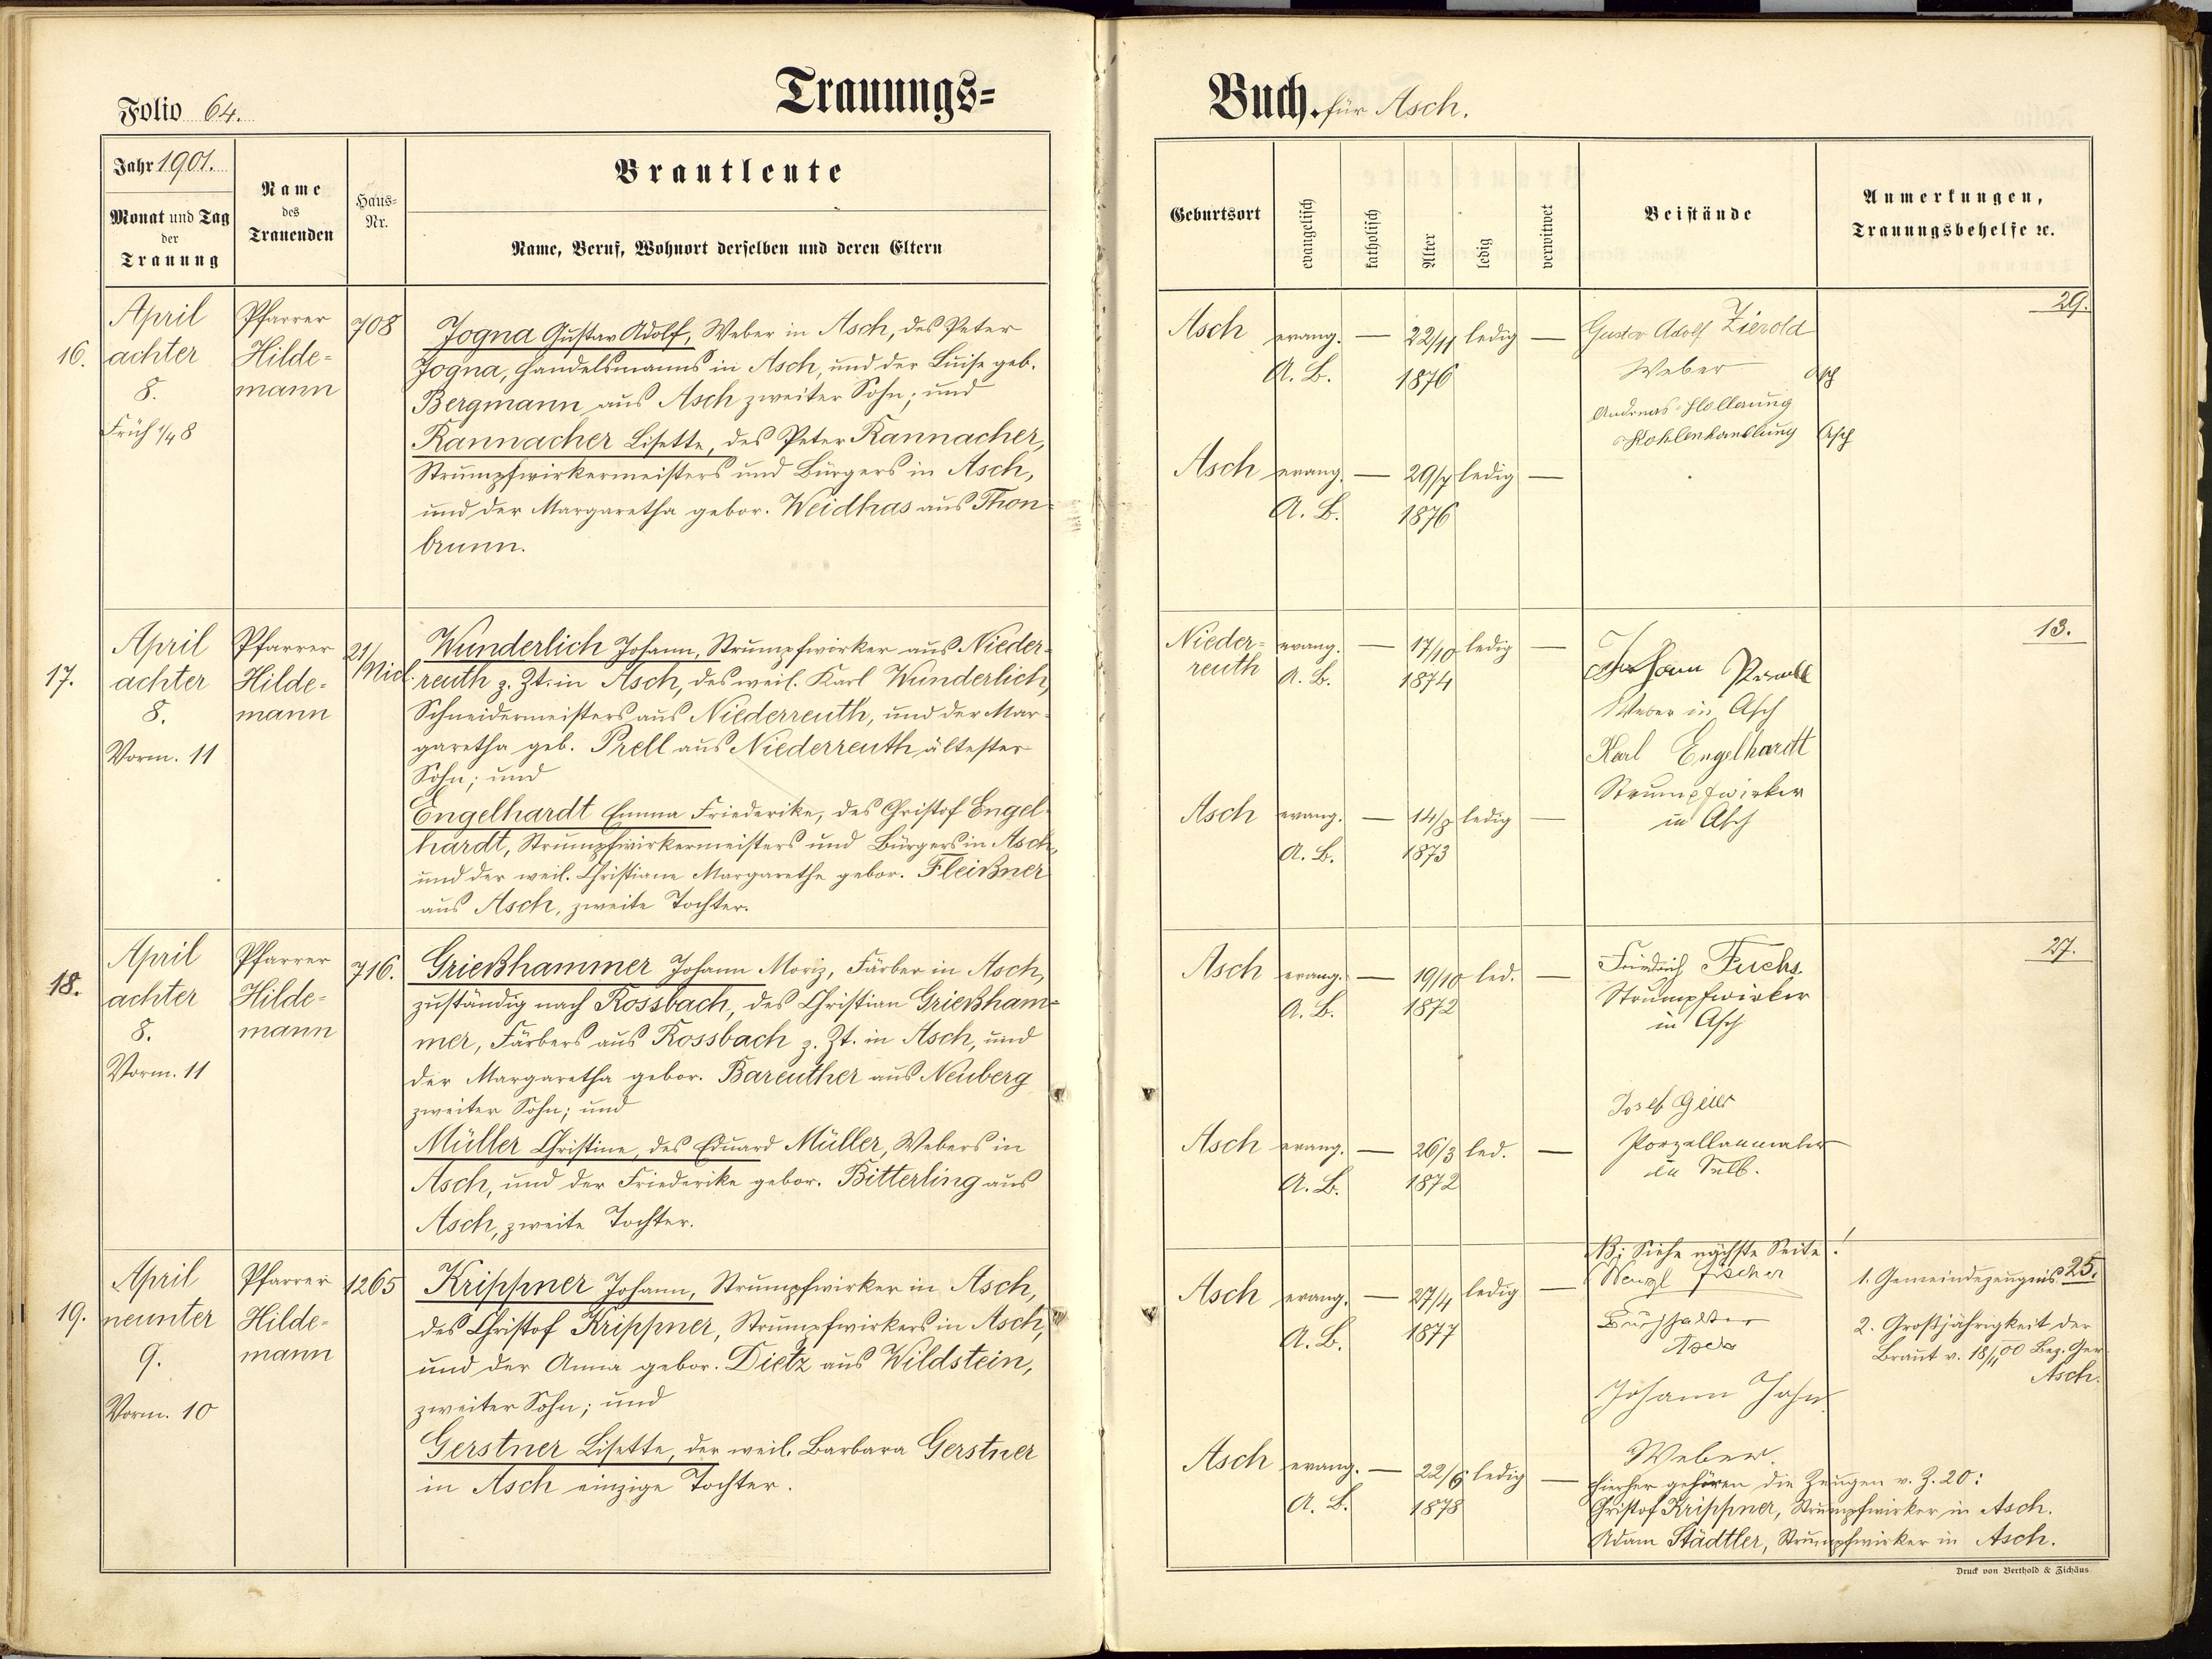 Folio 64.
Trauungs=
Jahr 1901.
Monat und Tag
der
Trauung
Name
des
Trauenden
Haus-
Nr.
Brautleute
Name, Beruf, Wohnort derselben und deren Eltern
16.
April
achter
8.
Früh ¼8
Pfarrer
Hilde=
mann
708
Jogna Gustav Adolf, Weber in Asch, des Peter
Jogna, Handelsmanns in Asch, und der Luise geb.
Bergmann aus Asch zweiter Sohn; und
Rannacher Lisette, des Peter Rannacher,
Strumpfwirkermeisters und Bürgers in Asch,
und der Margaretha gebor. Weidhas aus Thon=
brunn.
17.
April
achter
8.
Vorm. 11
Pfarrer
Hilde=
mann
21/
Nied.
Wunderlich Johann, Strumpfwirker aus Nieder=
reuth z. Zt. in Asch, des weil. Karl Wunderlich,
Schneidermeisters aus Niederreuth, und der Mar=
garetha geb. Prell aus Niederreuth ältester
Sohn; und
Engelhardt Emma Friederike, des Christof Engel=
hardt, Strumpfwirkermeisters und Bürgers in Asch,
und der weil. Christiane Margarethe gebor. Fleißner
aus Asch, zweite Tochter.
18.
April
achter
8.
Vorm. 11
Pfarrer
Hilde=
mann
716.
Grießhammer Johann Moriz, Färber in Asch,
zuständig nach Rossbach, des Christian Grießham=
mer, Färbers aus Rossbach z. Zt. in Asch, und
der Margaretha gebor. Bareuther aus Neuberg
zweiter Sohn; und
Müller Christine, des Eduard Müller, Webers in
Asch, und der Friederike gebor. Bitterling aus
Asch, zweite Tochter.
19.
April
neunter
9.
Vorm. 10
Pfarrer
Hilde=
mann
1265
Krippner Johann, Strumpfwirker in Asch,
des Christof Krippner, Strumpfwirkers in Asch,
und der Anna gebor. Dietz aus Wildstein,
zweiter Sohn; und
Gerstner Lisette, der weil. Barbara Gerstner
in Asch einzige Tochter.
Buch. für Asch.
Geburtsort
evangelisch
katholisch
Alter
ledig
verwitwet
Beistände
Anmerkungen,
Trauungsbehelfe ꝛc.
Asch evang. — 22/11 ledig —
A. B. 1876
Gustav Adolf Zierold
Weber Asch
Andreas Hollerung
Kohlenhandlung Asch
29.
Asch evang. — 29/7 ledig —
A. B. 1876
Nieder= evang. — 17/10 ledig —
reuth A. B. 1874
Johann
Weber in Asch
Karl Engelhardt
Strumpfwirker
in Asch
13.
Asch evang. — 14/8 ledig —
A. B. 1873
Asch evang. — 19/10 led. —
A. B. 1872
Friedrich Fuchs.
Strumpfwirker
in Asch
27.
Josef Geier
Porzellanmaler
in Selb.
Asch evang. — 26/3 led. —
A. B. 1872
NB; Siehe nächste Seite!
Asch evang. — 27/4 ledig —
A. B. 1877
Wenzl Fischer
Buchhalter
Asch
Johann Jahn
Weber.
1. Gemeindezeugnis 25.
2. Großjährigkeit der
Braut v. 18/11 00 Bez. Ger.
Asch.
Asch evang. — 22/6 ledig —
A. B. 1878
Hierher gehören die Zeugen v. Z. 20:
Christof Krippner, Strumpfwirker in Asch.
Adam Städtler, Strumpfwirker in Asch.
Druck von Berthold & Zichäus